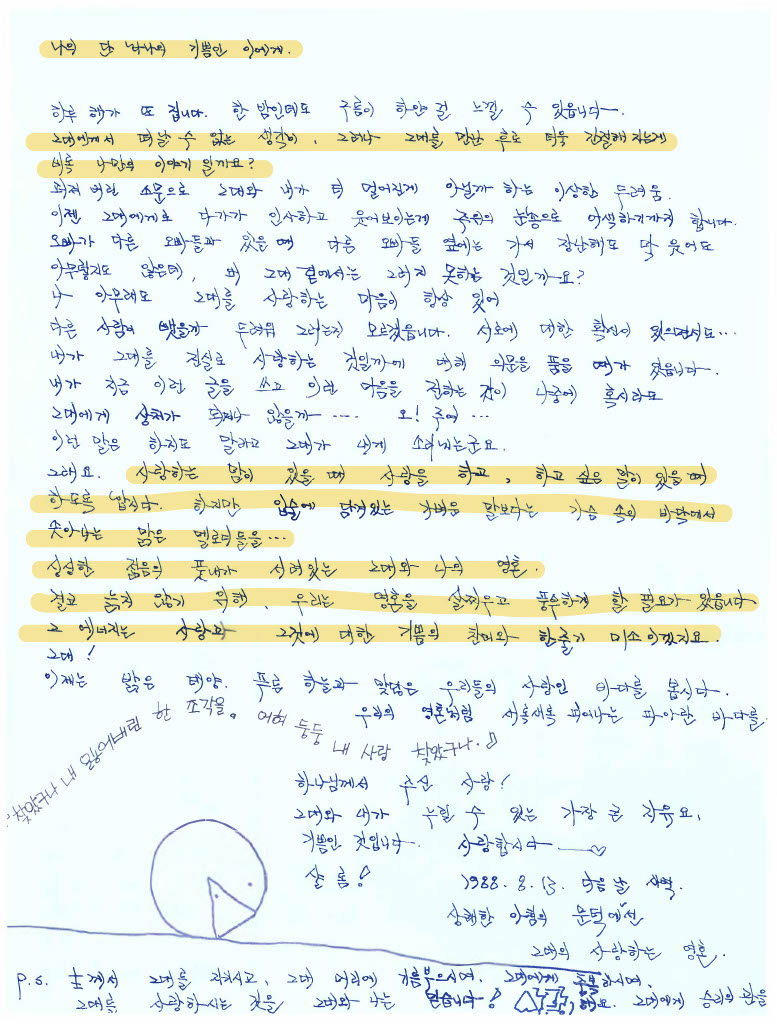 나의 단 하나의 기쁨인 이에게.
하루 해가 또 집니다. 한 밤인데도 구름이 하얀 걸 느낄 수 있읍니다.
그대에게서 떠날 수 없는 생각이, 그러나 그대를 만난 후로 더욱 간절해 지는게
비록 나만의 이야기 일까요?
퍼져 버린 소문으로 그대와 내가 더 멀어진게 아닐까 하는 이상한 두려움.
이젠 그대에게로 다가가 인사하고 웃어보이는게 주위의 눈총으로 어색하기까지 합니다.
오빠가 다른 오빠들과 있을 때 다른 오빠들 옆에는 가서 장난해도 막 웃어도
아무렇지도 않은데, 왜 그대 곁에서는 그러지 못하는 것일까요?
나 아무래도 그대를 사랑하는 마음이 항상 있어
다른 사람이 뺏을까 두려워 그러는지 모르겠읍니다. 서로에 대한 확신이 있으면서도...
내가 그대를 진실로 사랑하는 것일까에 대해 의문을 품을 때가 있읍니다.
내가 지금 이런 글을 쓰고 이런 마음을 전하는 것이 나중에 혹시라도
그대에게 상처가 되지나 않을까 .... 오! 주여 ...
이런 말은 하지도 말라고 그대가 내게 소리치는군요.
그래요. 사랑하는 맘이 있을 때 사랑을 하고, 하고 싶은 말이 있을 때
하도록 합시다. 하지만 입술에 담겨있는 가벼운 말보다는 가슴 속의 바닥에서
솟아나는 맑은 멜로디들을...
싱싱한 젊음의 풋내가 서려있는 그대와 나의 영혼.
결코 늙지 않기 위해, 우리는 영혼을 살찌우고 풍수하게 할 필요가 있읍니다
그 에너지는 사랑과 그것에 대한 기쁨의 찬미와 한줄기 미소이겠지요.
그대!
이제는 밝은 태양. 푸른 하늘과 맞닿은 우리들의 사랑인 바다를 봅시다.
우리의 영혼처럼 서록서록 피어나는 파아란 바다를
찾았구나 내 몸이여 한 조각을. 어허 둥둥 내 사랑 찾았구나.♪
하나님께서 주신 사랑!
그대와 내가 누릴 수 있는 가장 큰 자유요,
기쁨인 것입니다. 사랑합시다 ♡
샬롬!
1988. 8. 13. 다음 날 새벽.
상쾌한 아침의 문턱에선
그대의 사랑하는 영혼.
p.s. 主께서 그대를 지키시고, 그대 머리에 기름부으시며, 그대에게 축복하시며,
그대를 사랑하시는 것을 그대와 나는 믿습니다! 승리, 해요. 그대에게 승리의 관을